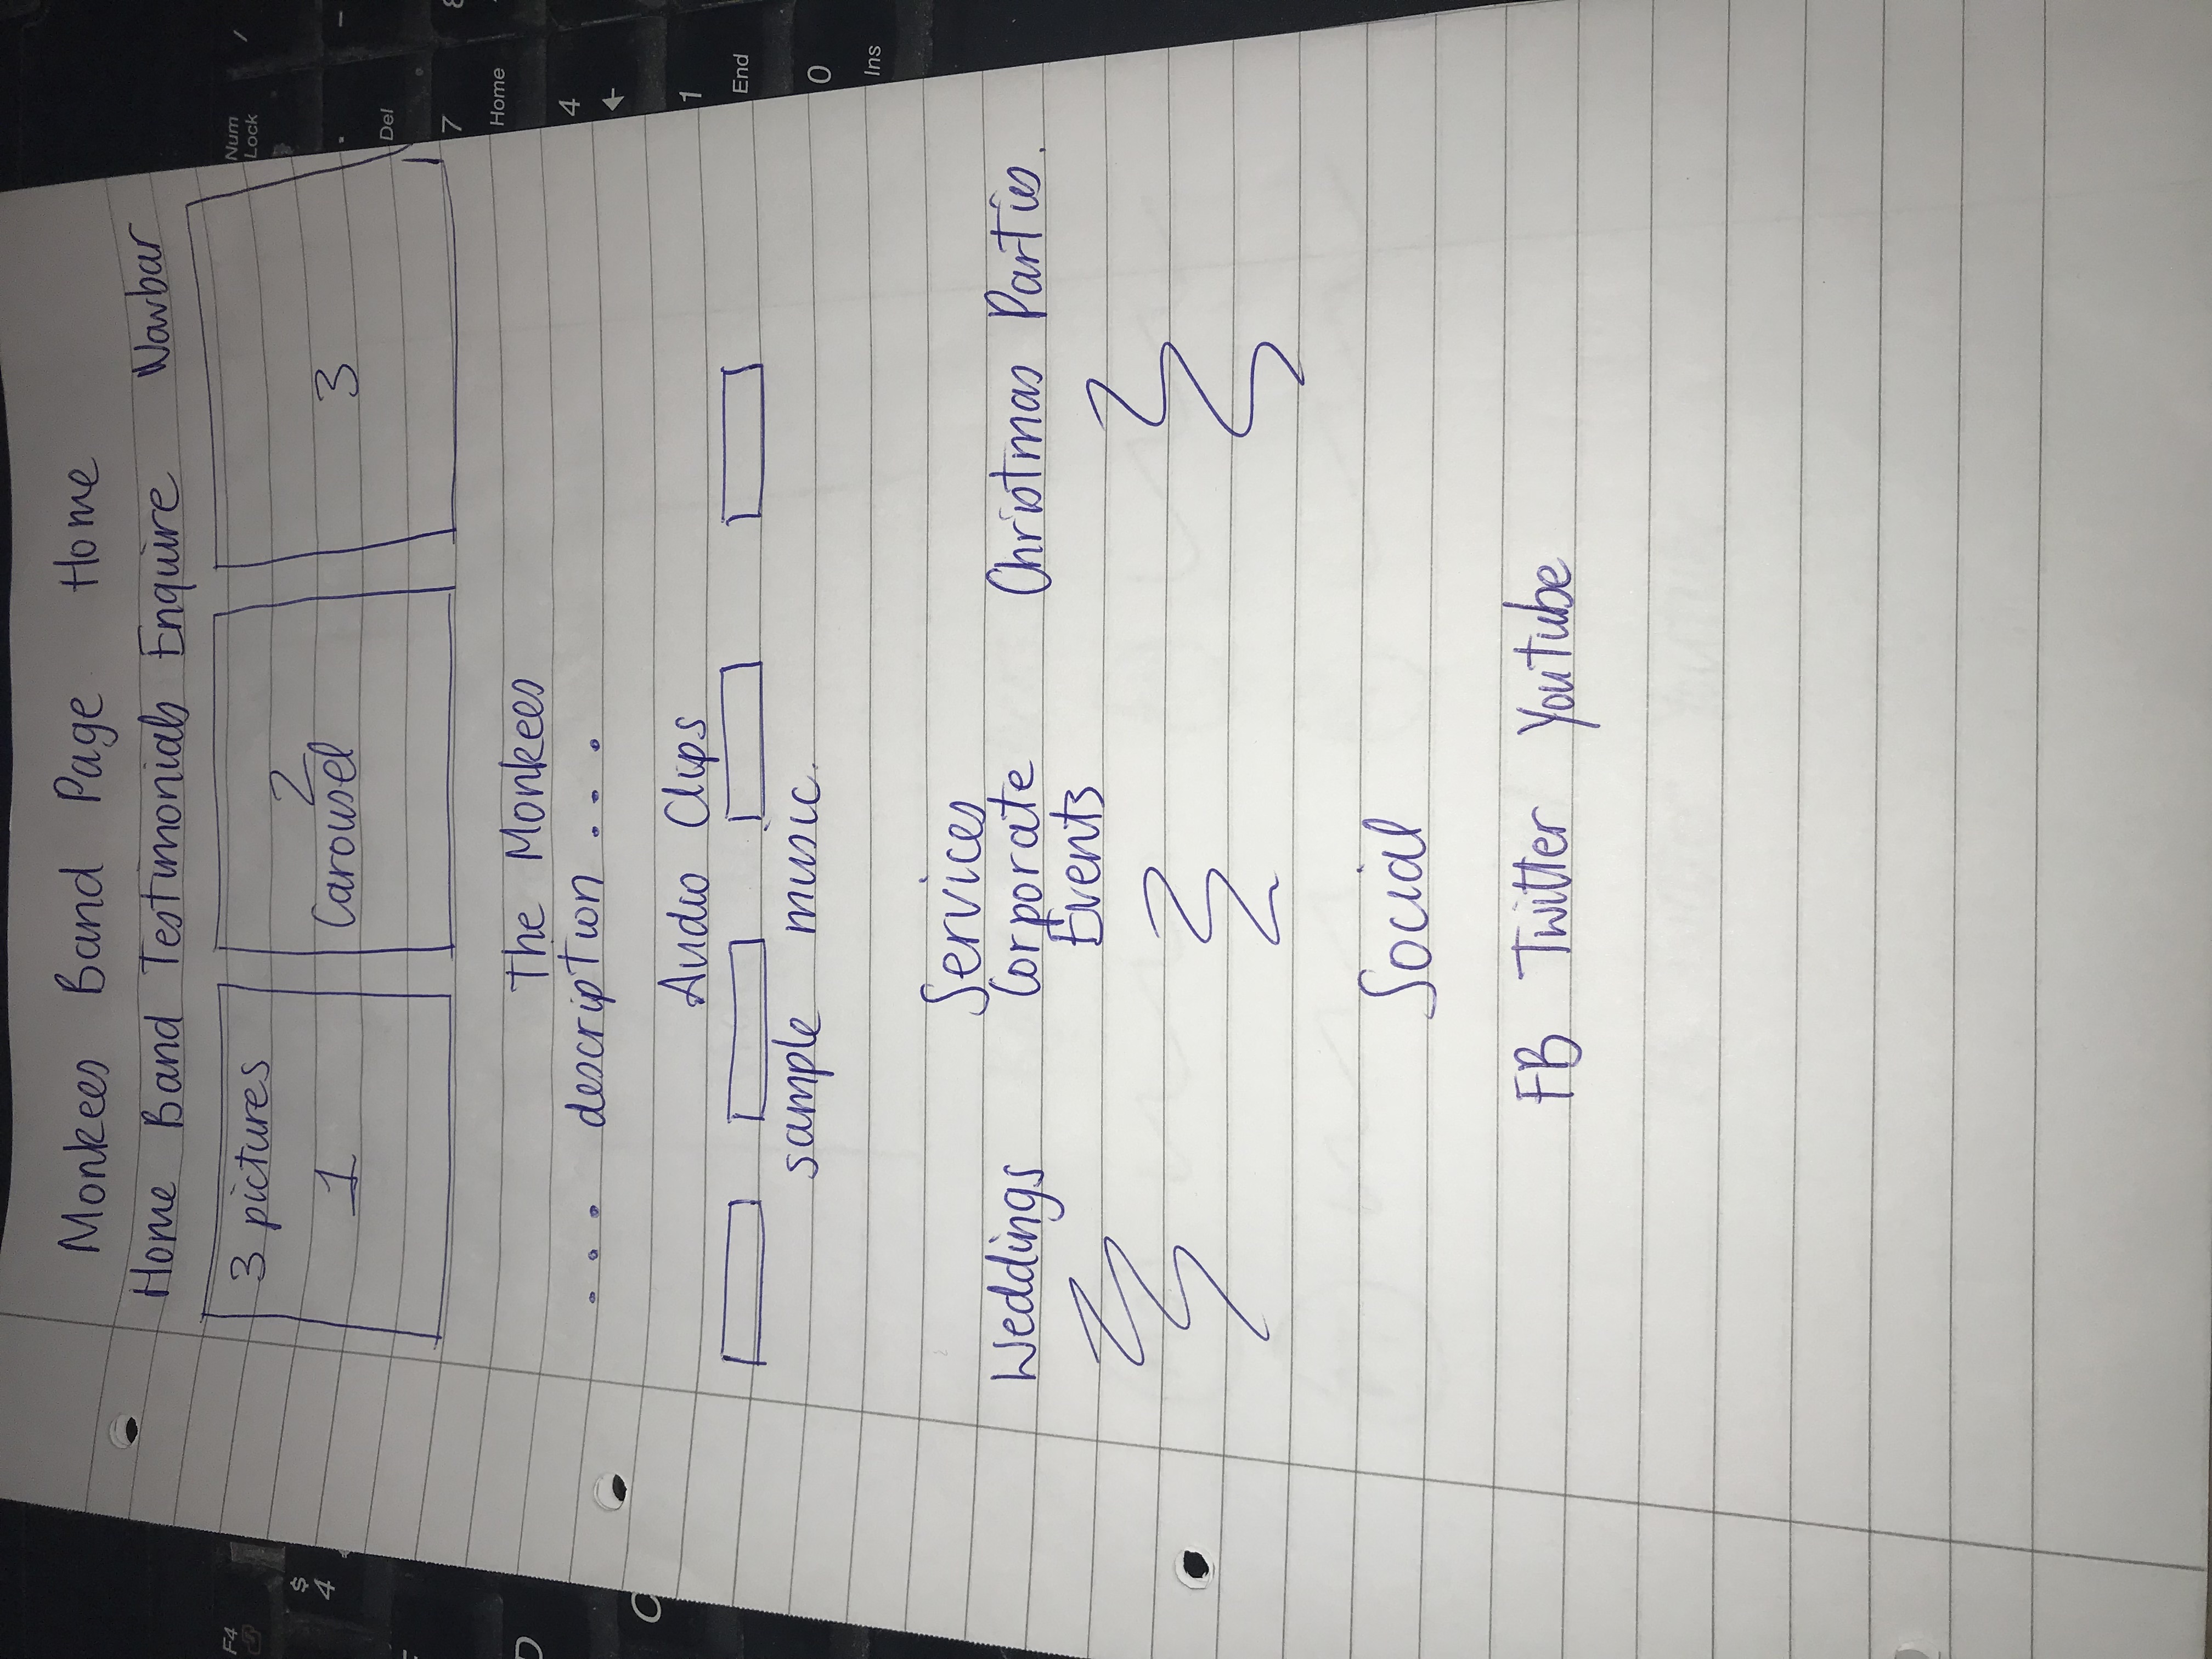 Monkees Band Page Home
Home Band Testimonials Enquire Navbar
3 pictures
1
2
Carousel
3
The Monkees
... description ...
Audio Clips
sample music.
Services
Weddings
Corporate
Events
Christmas Parties.
Social
FB Twitter Youtube
F4
$
4
F
D
C
Num
Lock
/
.
Del
-
7
Home
8
4
←
1
End
0
Ins